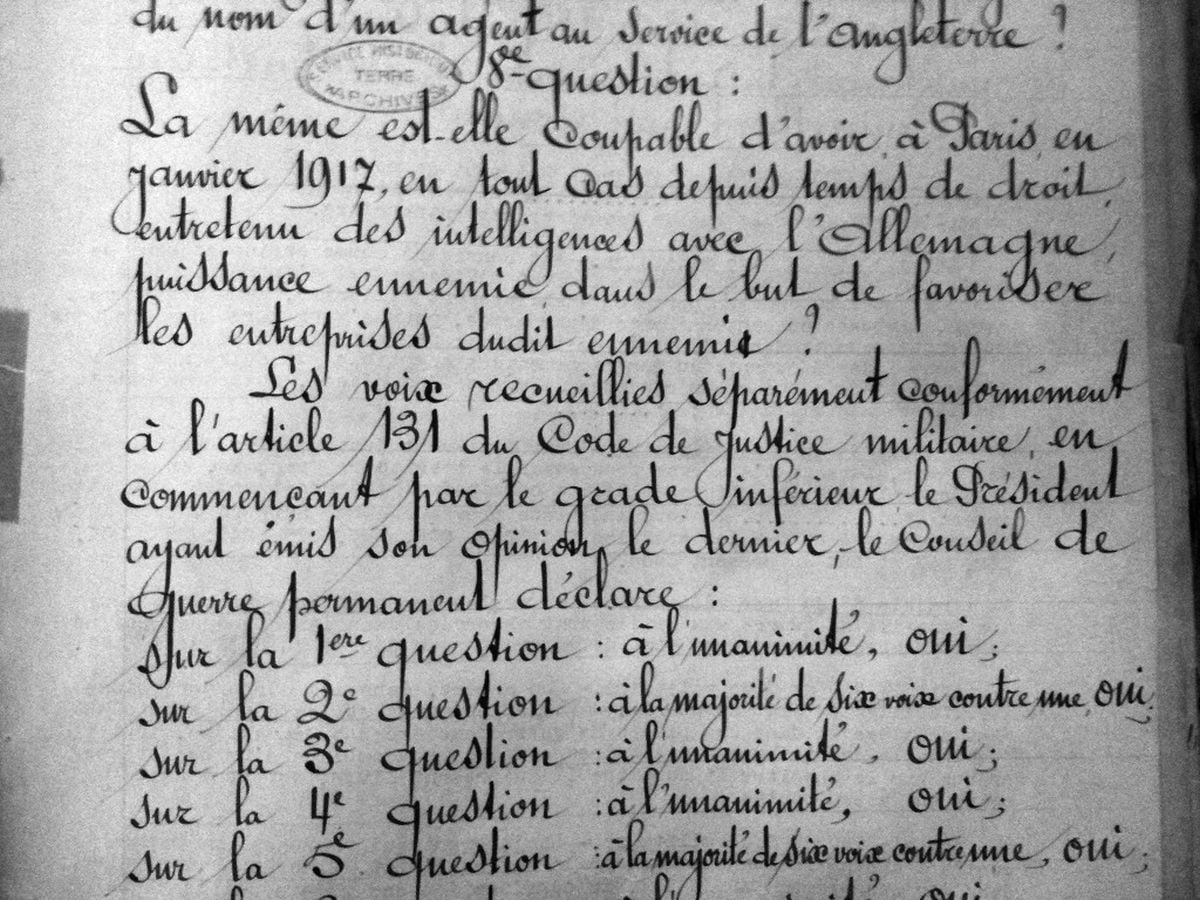 du nom d'un agent au service de l'Angleterre ?
SERVICE HISTORIQUE
TERRE
ARCHIVES
8e question :
La même est-elle Coupable d'avoir, à Paris, en
janvier 1917, en tout cas depuis temps de droit,
entretenu des intelligences avec l'Allemagne,
puissance ennemie, dans le but de favoriser
les entreprises dudit ennemie ?
Les voix recueillies séparément conformément
à l'article 131 du Code de Justice militaire, en
commençant par le grade inférieur le Président
ayant émis son opinion, le dernier, le Conseil de
Guerre permanent déclare :
Sur la 1ere question : à l'unanimité, oui ;
sur la 2e question : à la majorité de six voix contre une, oui ;
sur la 3e question : à l'unanimité, oui ;
sur la 4e question : à l'unanimité, oui ;
sur la 5e question : à la majorité de six voix contre une, oui ;